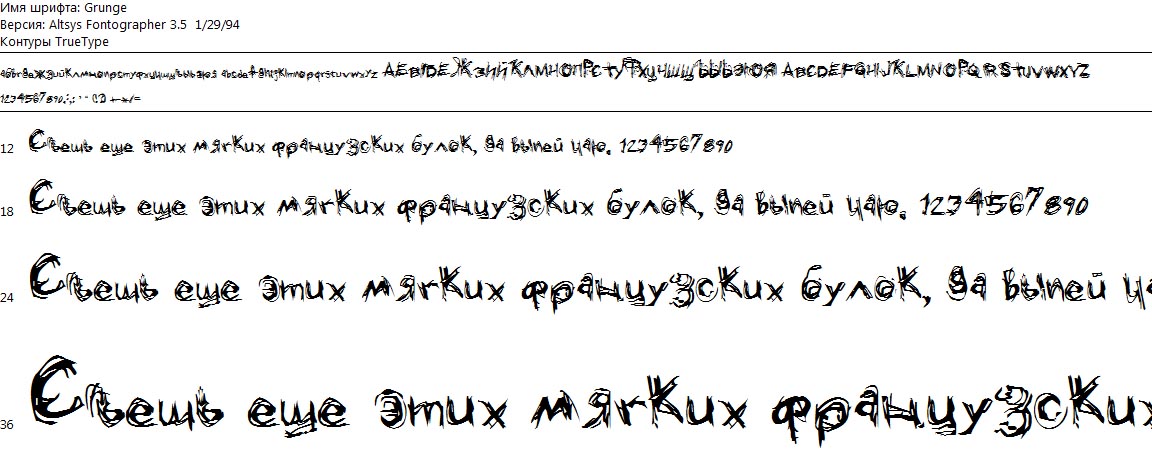 Имя шрифта: Grunge
Версия: Altsys Fontographer 3.5 1/29/94
Контуры TrueType
1234567890.:,; ' " (!?) +-*/=
12 Съешь еще этих мягких французских булок, да выпей чаю. 1234567890
18 Съешь еще этих мягких французских булок, да выпей чаю. 1234567890
24 Съешь еще этих мягких французских булок, да выпей ча
36 Съешь еще этих мягких французских